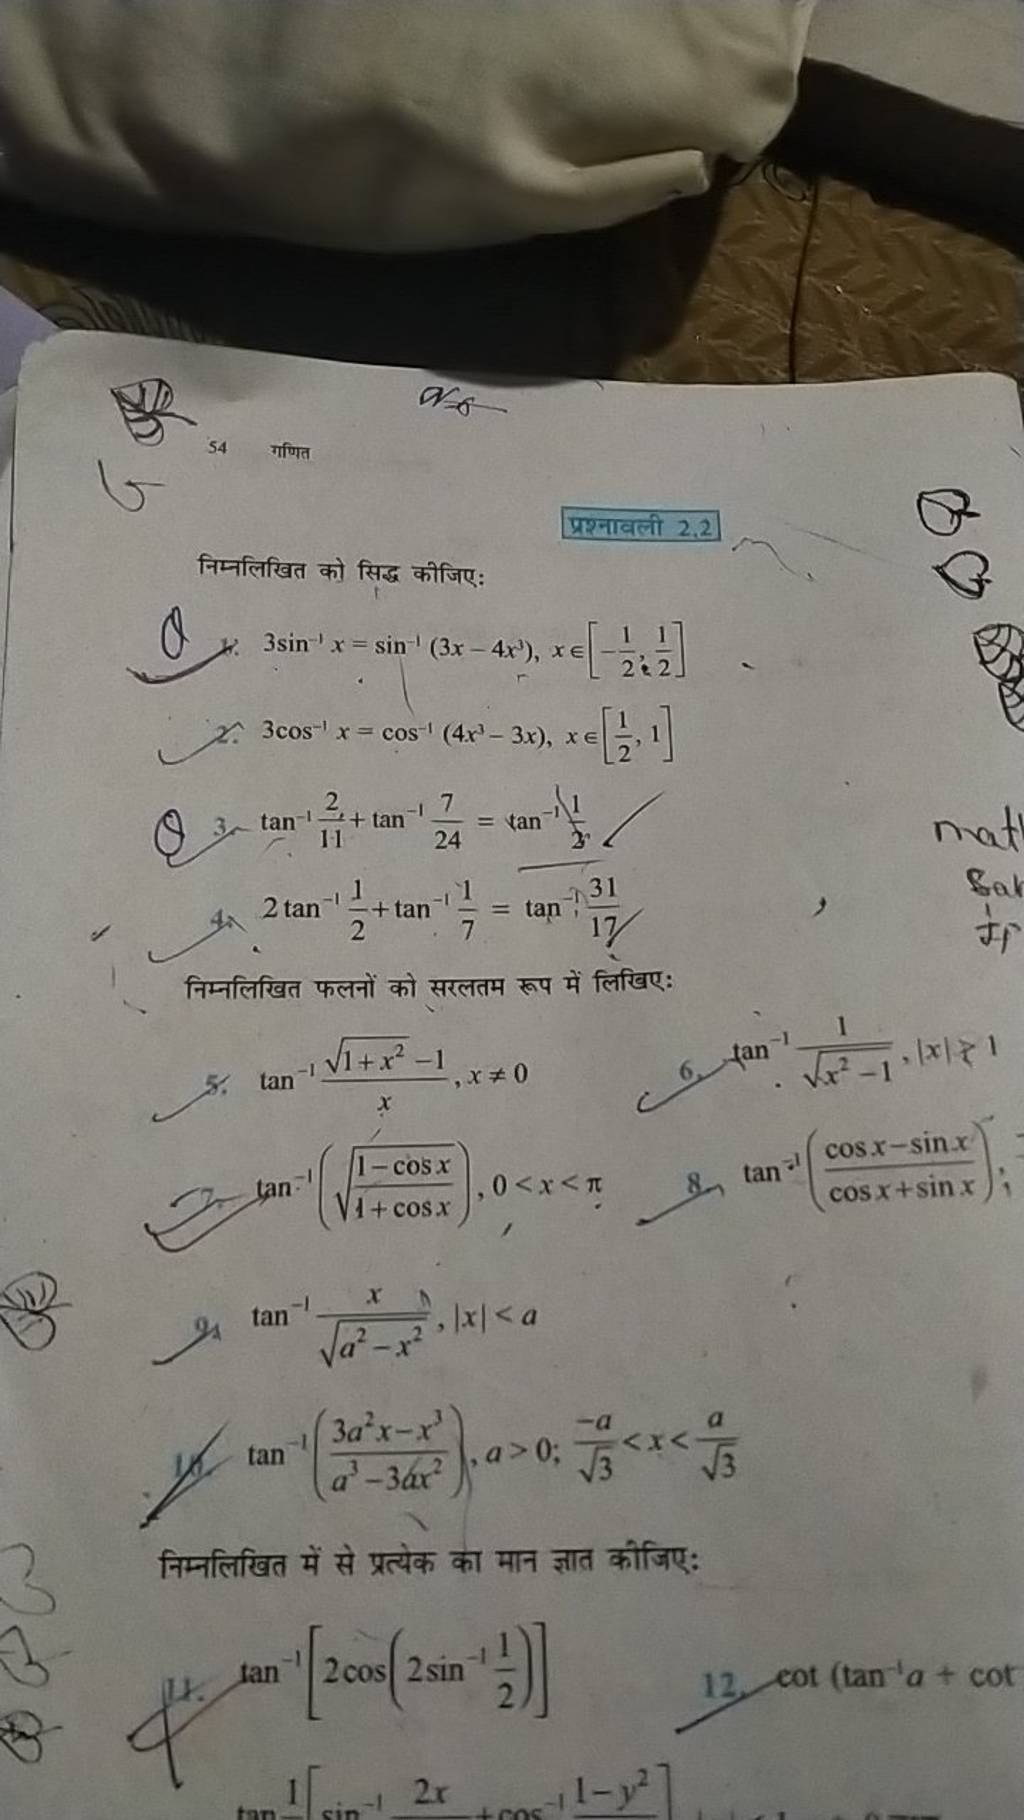 54 गणित
प्रश्नावली 2.2
निम्नलिखित को सिद्ध कीजिए:
1. 3sin⁻¹ x = sin⁻¹ (3x – 4x³), x ∈ [–1/2, 1/2]
2. 3cos⁻¹ x = cos⁻¹ (4x³ – 3x), x ∈ [1/2, 1]
3. tan⁻¹ 2/11 + tan⁻¹ 7/24 = tan⁻¹ 1/2
4. 2 tan⁻¹ 1/2 + tan⁻¹ 1/7 = tan⁻¹ 31/17
निम्नलिखित फलनों को सरलतम रूप में लिखिए:
5. tan⁻¹ (√(1+x²) –1)/x, x ≠ 0 6. tan⁻¹ 1/√(x² –1), |x| > 1
7. tan⁻¹ (√((1–cos x)/(1+cos x))), 0 < x < π 8. tan⁻¹ ((cos x–sin x)/(cos x+sin x)),
9. tan⁻¹ x/√(a² – x²), |x| < a
10. tan⁻¹ ((3a²x – x³)/(a³ – 3ax²)), a > 0; –a/√3 < x < a/√3
निम्नलिखित में से प्रत्येक का मान ज्ञात कीजिए:
11. tan⁻¹ [2 cos (2 sin⁻¹ 1/2)] 12. cot (tan⁻¹a + cot
tan 1 [sin⁻¹ 2x + cos⁻¹ 1– y²]
math